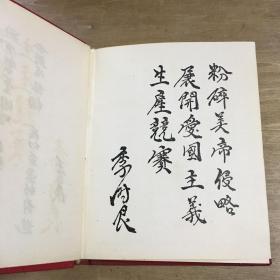 粉碎美帝侵略
展開愛國主義
生產競賽
季灼良